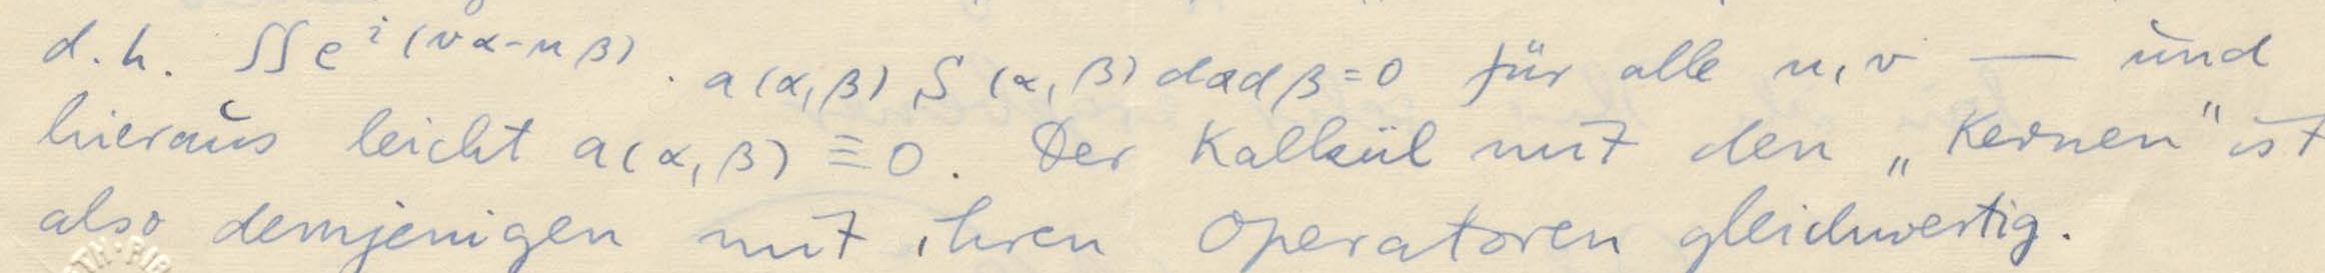 d.h. ∬e^{i(vα-uβ)} · a(α,β) S(α,β) dαdβ=0 für alle u,v — und
hieraus leicht a(α,β) ≡ 0. Der Kalkül mit den „Kernen" ist
also demjenigen mit ihren Operatoren gleichwertig.